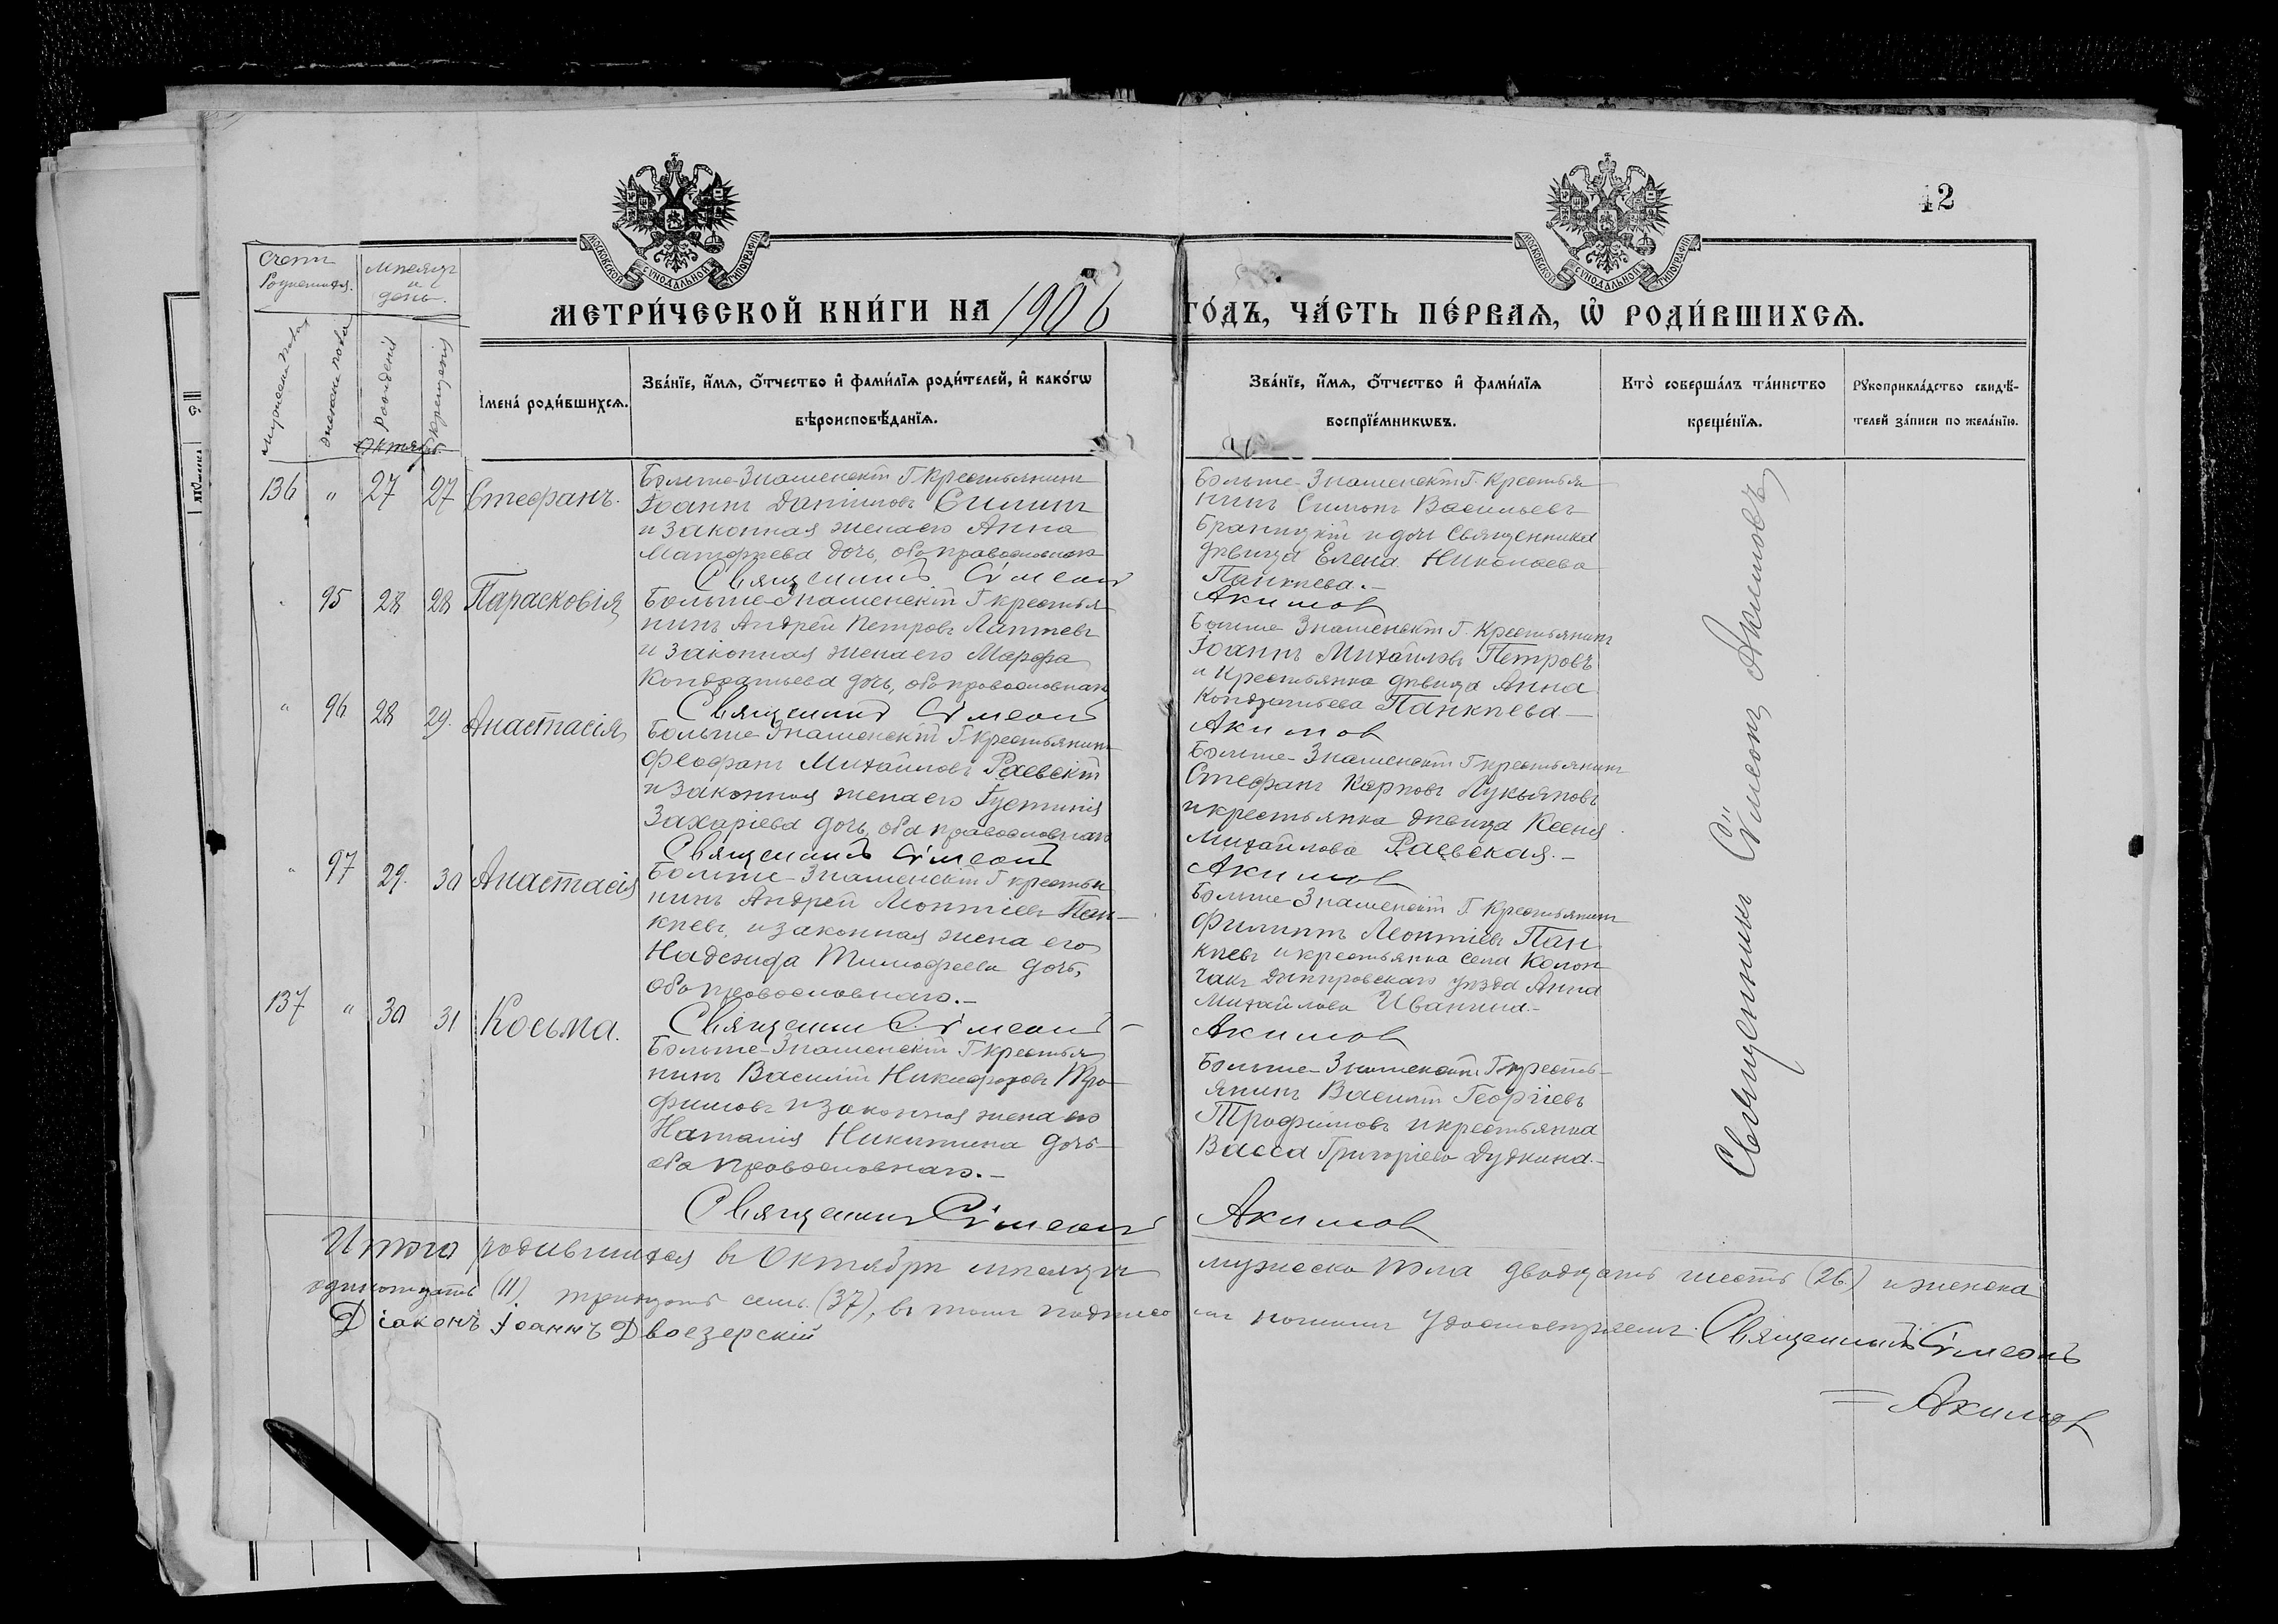 42
МОСКОВСКОЙ СУНОДАЛЬНОЙ ТИПОГРАФІИ
МОСКОВСКОЙ СУНОДАЛЬНОЙ ТИПОГРАФІИ
МЕТРИ́ЧЕСКОЙ КНИ́ГИ НА 1906 ГО́ДЪ, ЧА́СТЬ ПЕ́РВАѦ, Ѡ҆ РОДИ́ВШИХСѦ.
Счетъ Родившихся.
Мѣсяцъ и день.
мужеска пола
женска пола
Рожденія
крещенія
Октябрь
І҆мена̀ роди́вшихсѧ.
Зва́нїе, и҆́мѧ, ѻ҆́тчество и҆ фами́лїѧ роди́телей, и҆ како́гѡ
вѣроисповѣ́данїѧ.
Зва́нїе, и҆́мѧ, ѻ҆́тчество и҆ фами́лїѧ
воспрїе́мникѡвъ.
Кто̀ соверша́лъ та́инство
креще́нїѧ.
Рꙋкоприкла́дство свидѣ́-
телей за́писи по жела́нїю.
136 " 27 27 Стефанъ.
Больше-Знаменскій Г. Крестьянинъ
Іоаннъ Даніиловъ Силинъ
и законная жена его Анна
Матфіева дочь, оба православнаго
Священникъ Сѵмеонъ
Больше-Знаменскій Г. Крестья
нинъ Симонъ Васильевъ
Браницкій и дочь Священника
дѣвица Елена Николаева
Панкѣева.-
Акимов
" 95 28 28 Парасковія
Больше-Знаменскій Г крестья
нинъ Андрей Петровъ Лаптевъ
и законная жена его Марфа
Кондратьева дочь, оба православнаго
Священникъ Сѵмеонъ
Больше Знаменскій Г. Крестьянинъ
Іоаннъ Михайловъ Петровъ
и Крестьянка дѣвица Анна
Кондратьева Панкѣева.-
Акимов
" 96 28 29. Анастасія
Больше Знаменскій Г Крестьянинъ
Феофанъ Михайловъ Раевскій
и законная жена его Іустинія
Захаріева дочь, оба православнаго
Священникъ Сѵмеонъ
Больше-Знаменскій Г крестьянинъ
Стефанъ Карповъ Лукьяновъ
и крестьянка дѣвица Ксенія
Михайлова Раевская.-
Акимов
" 97 29. 30 Анастасія
Больше-Знаменскій Г крестья
нинъ Андрей Леонтіевъ Пан-
кѣевъ, и законная жена его
Надежда Тимофеева дочь,
оба православнаго.-
Священник Сѵмеонъ
Больше Знаменскій Г. Крестьянинъ
Филиппъ Леонтіевъ Пан
кѣевъ и крестьянка села Колон
чакъ Днѣпровскаго уѣзда Анна
Михайлова Иванина.-
Акимов
137 " 30 31 Косьма.
Больше-Знаменскій Г крестья
нинъ Василій Никифоровъ Тро-
фимовъ и законная жена его
Наталія Никитина дочь-
оба православнаго.-
Священникъ Сѵмеонъ
Больше-Знаменскій Г. кресть-
янинъ Василій Георгіевъ
Трофимовъ и крестьянка
Васса Григоріева Дудкина.-
Акимов
Священникъ Сѵмеонъ Акимовъ
Итого родившихся въ Октябрѣ мѣсяцѣ мужеска пола двадцать шесть (26) и женска
одинадцать (11) тридцать семь (37), въ томъ подписомъ нашимъ удостовѣряемъ: Священникъ Сѵмеонъ
Акимов
Діаконъ Іоаннъ Двоезерскій